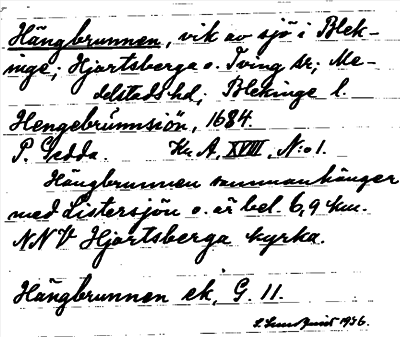 Hängbrunnen, vik av sjö i Blek-
inge; Hjortsberga o. Tving sn; Me-
delstads hd; Blekinge l.
Hengebrúnnsiön, 1684.
P. Gedda. Kn A, XVIII, N:o 1.
Hängbrunnen sammanhänger
med Listersjön o. är bel. 6,9 km.
NNV Hjortsberga kyrka.
Hängbrunnen ek, G. 11.
1936.